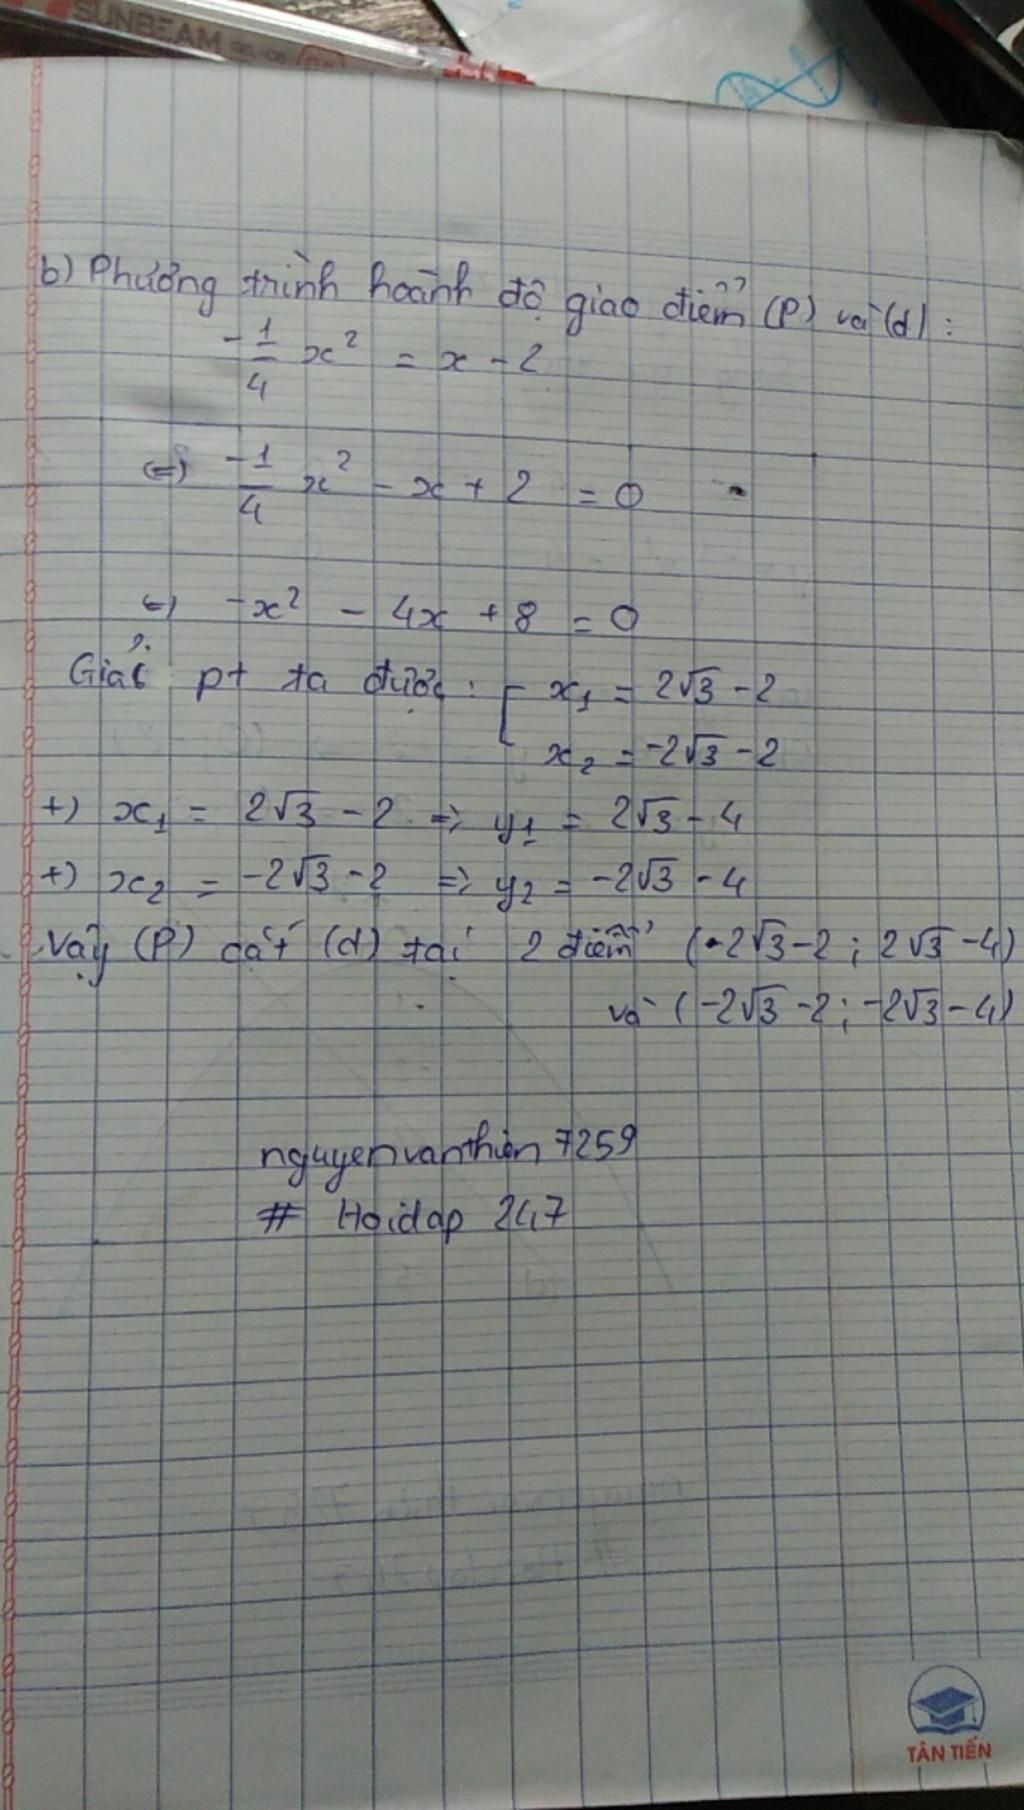 SUNBEAM
b) Phương trình hoành độ giao điểm (P) và (d) :
-1/4 x² = x - 2
(=) -1/4 x² - x + 2 = 0
(=) -x² - 4x + 8 = 0
Giải pt ta được : [ x₁ = 2√3 - 2
x₂ = -2√3 - 2
+) x₁ = 2√3 - 2 => y₁ = 2√3 - 4
+) x₂ = -2√3 - 2 => y₂ = -2√3 - 4
Vậy (P) cắt (d) tại 2 điểm (-2√3 - 2 ; 2√3 - 4)
và (-2√3 - 2 ; -2√3 - 4)
nguyenvanthien 7259
# Hoidap 247
TÂN TIẾN